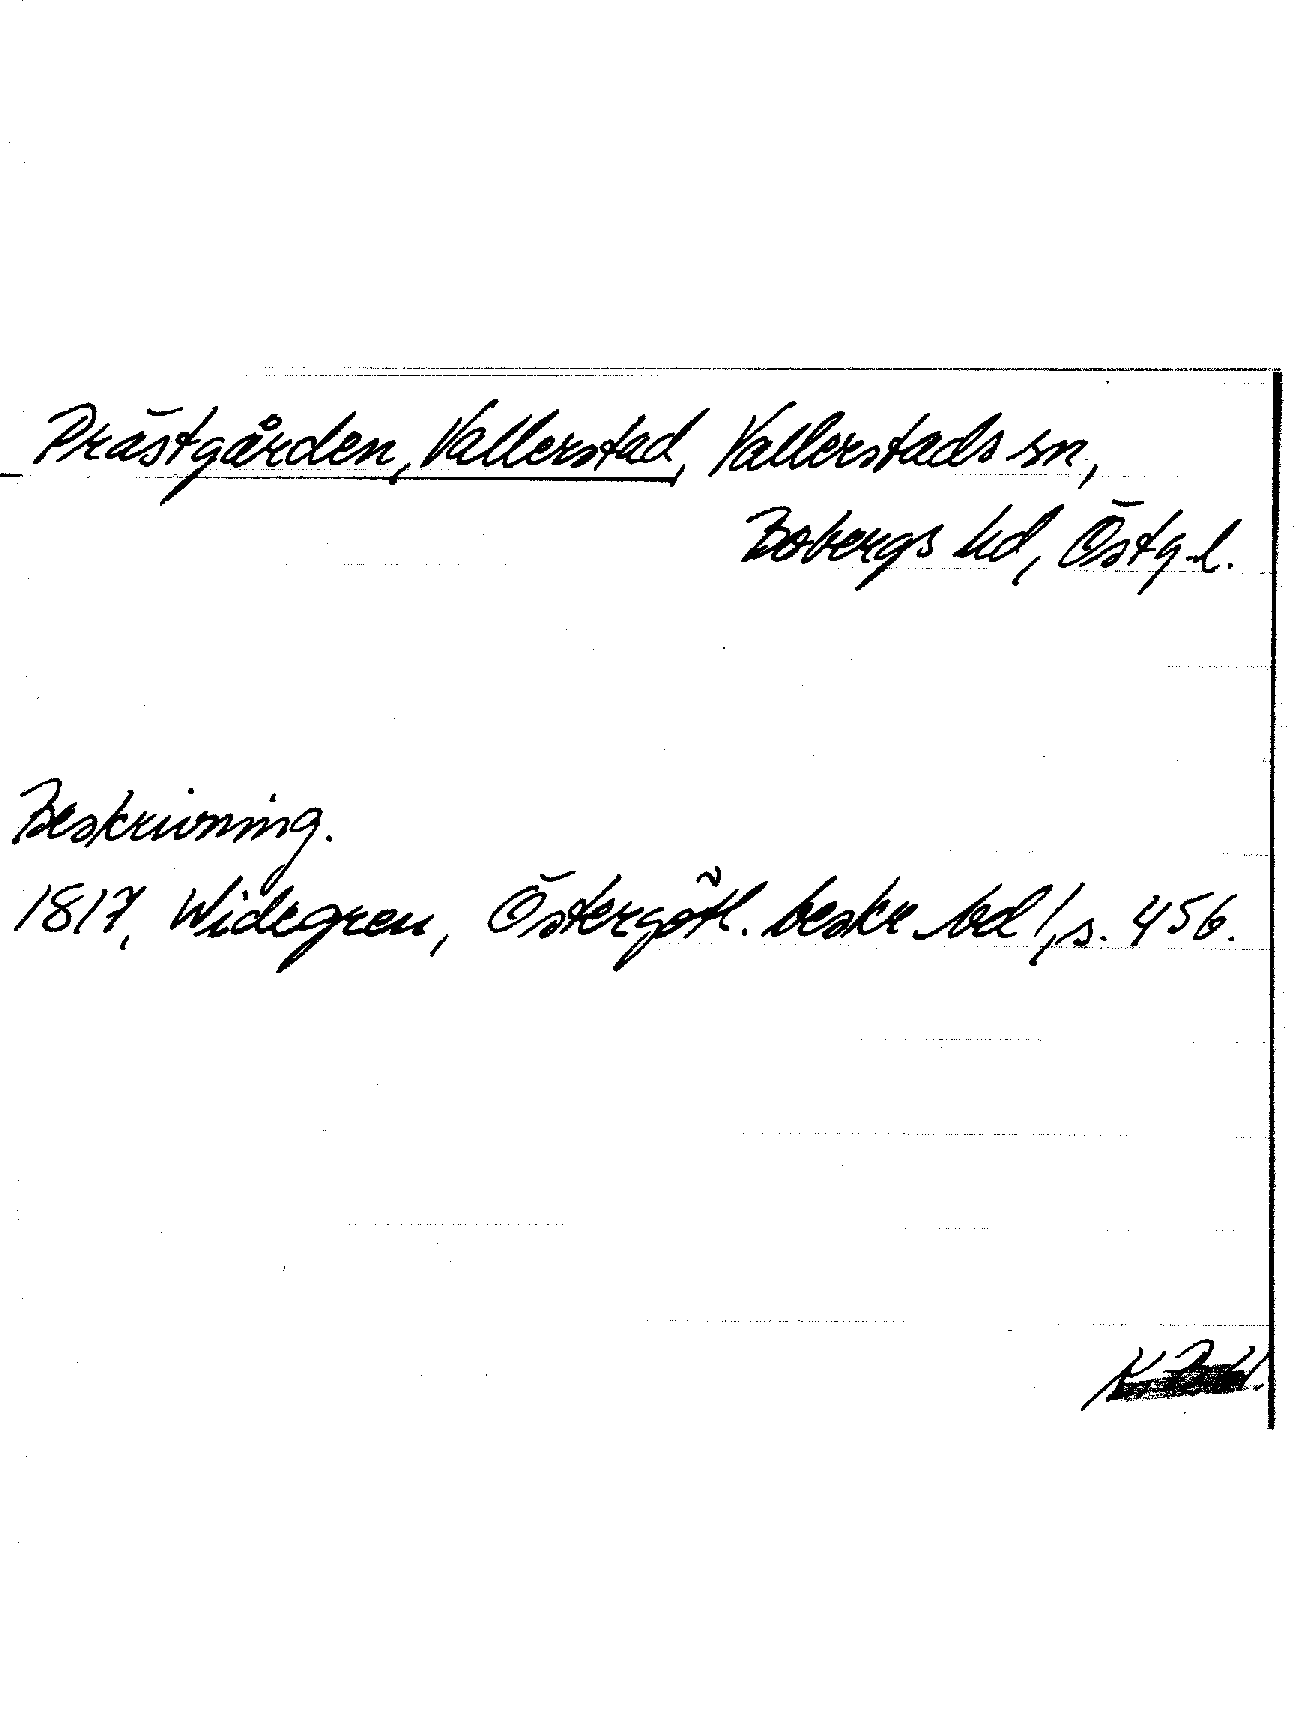 Prästgården, Vallerstad, Vallerstads sn,
Bobergs hd, Östg.l.
Beskrivning.
1817, Widegren, Östergötl. beskr bd 1, s. 456.